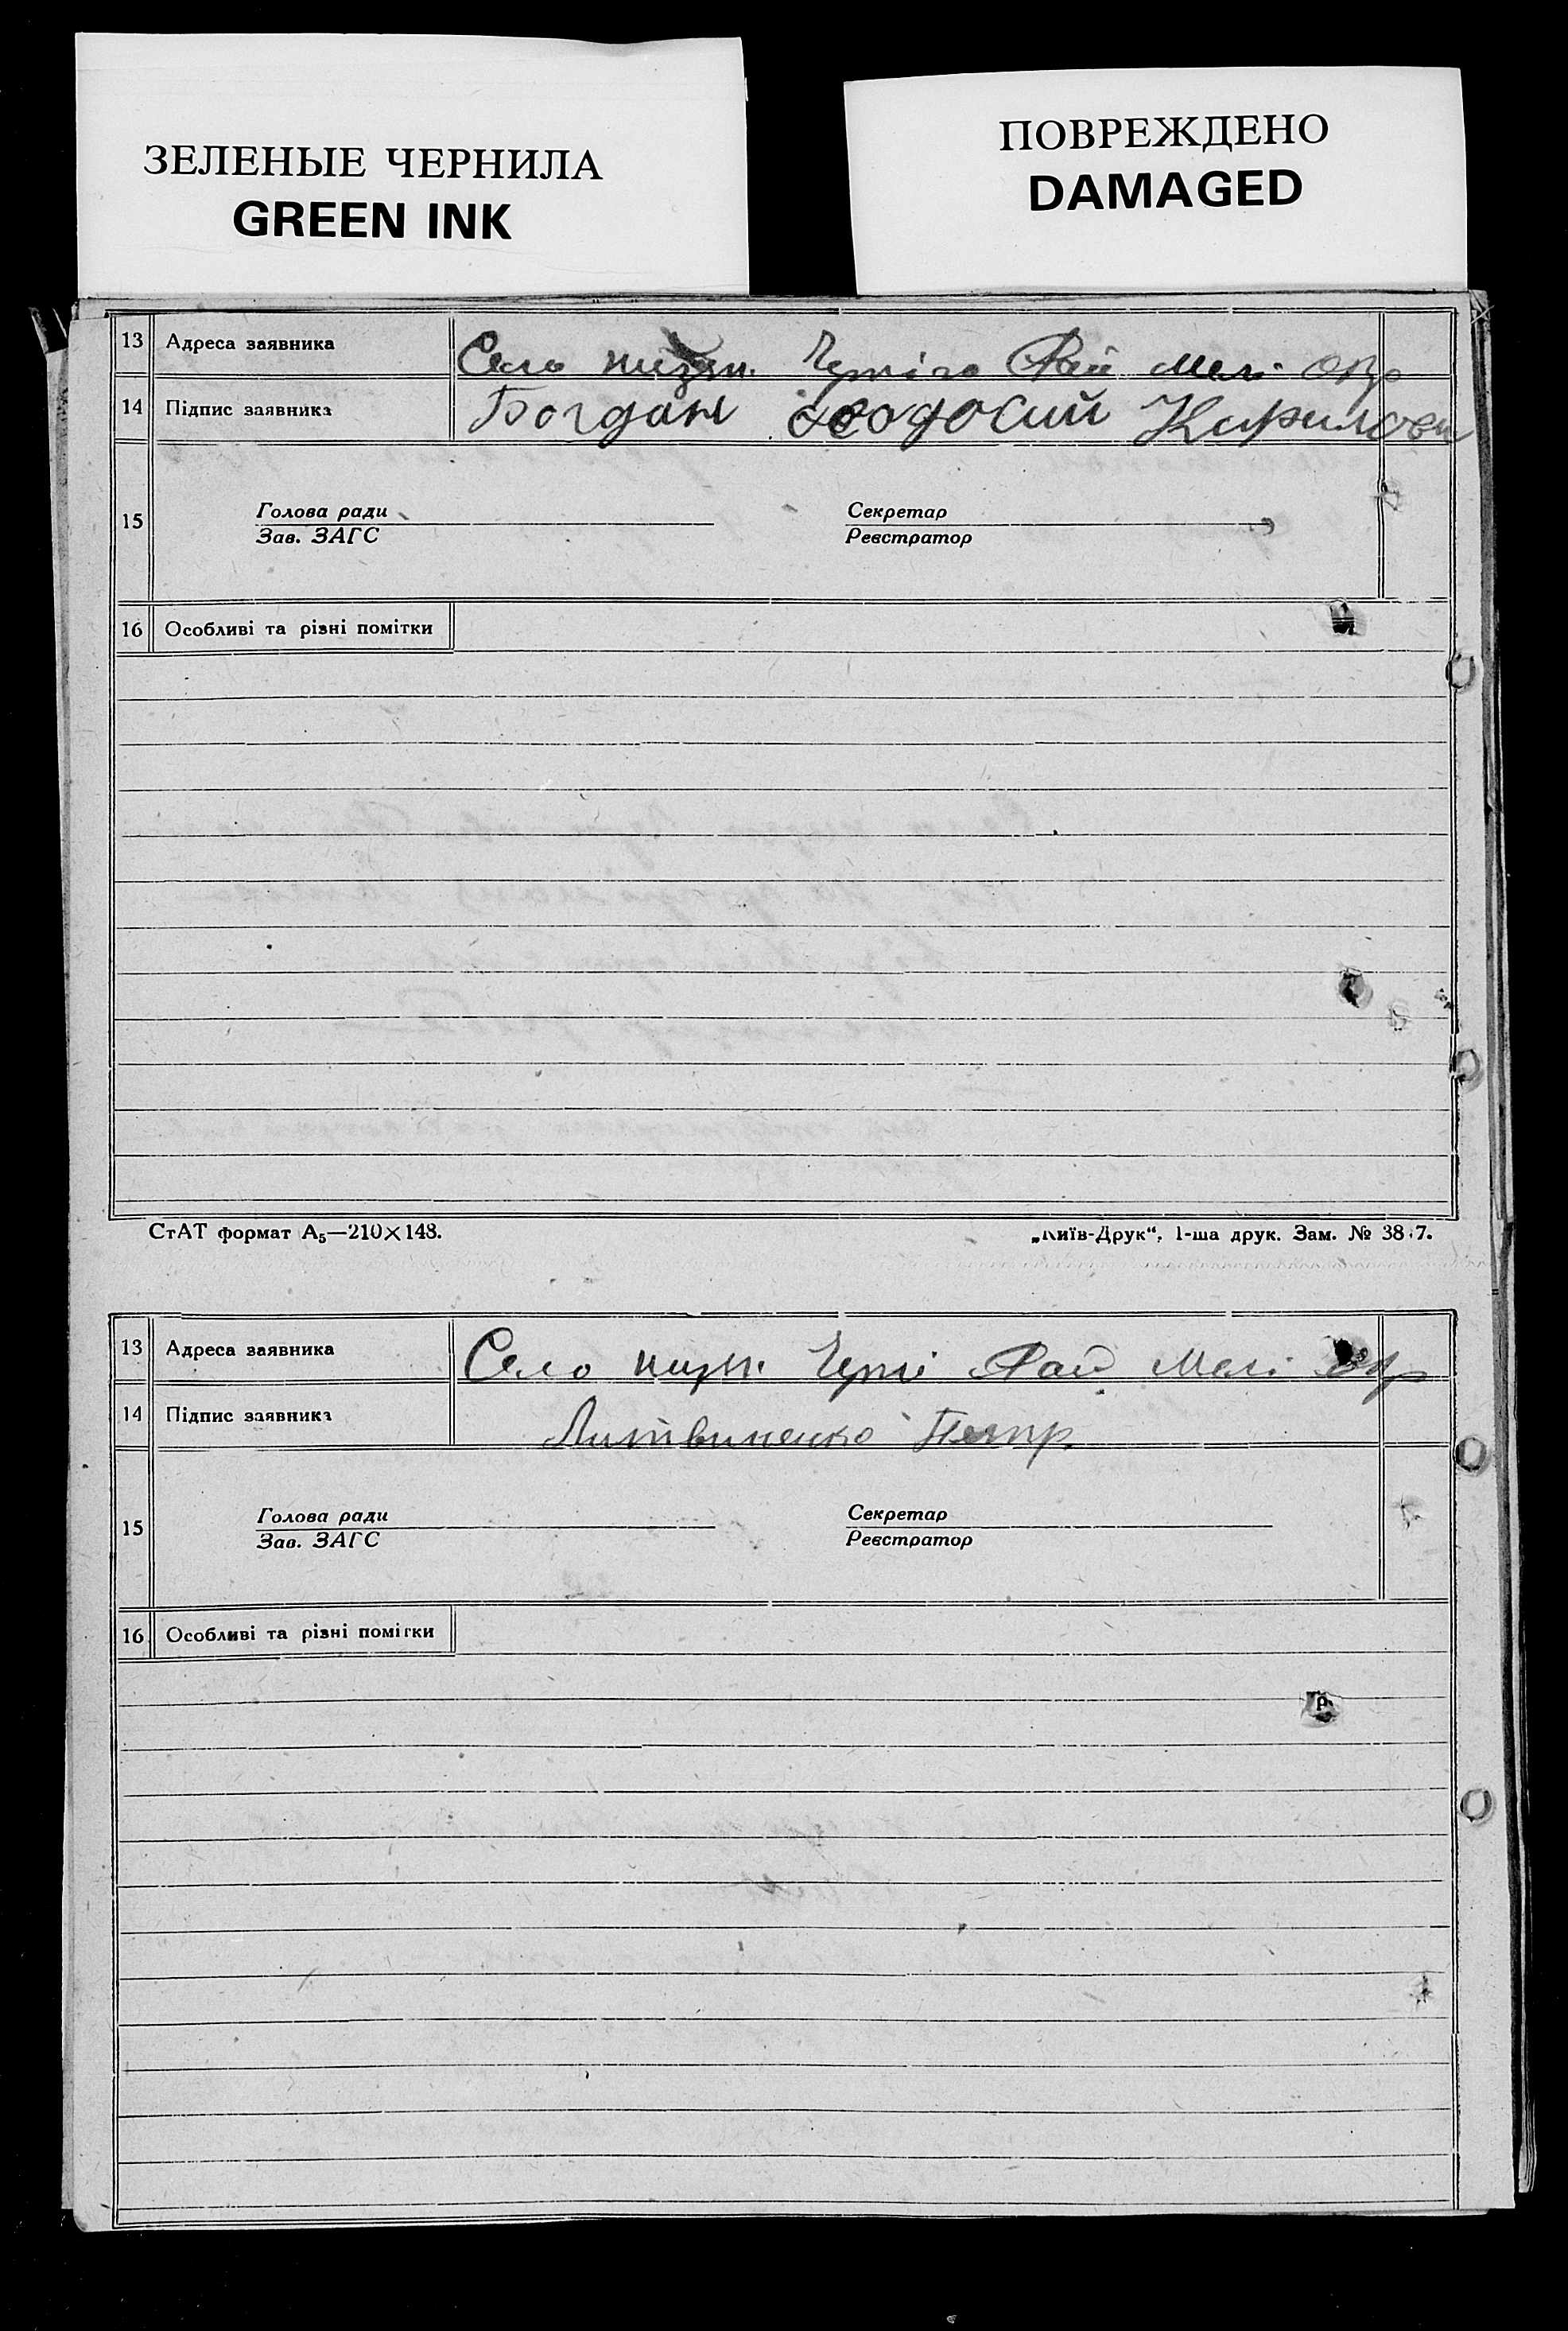 ЗЕЛЕНЫЕ ЧЕРНИЛА
GREEN INK
ПОВРЕЖДЕНО
DAMAGED
13 Адреса заявника Село Рай Мелі Окр
14 Підпис заявника Богдан Феодосий Кирилови
15 Голова ради Секретар
Зав. ЗАГС Реєстратор
16 Особливі та різні помітки
СтАТ формат А5—210×148. „Київ-Друк“, 1-ша друк. Зам. №
13 Адреса заявника Село Рай Мелі Окр
14 Підпис заявника Литвиненко Петр
15 Голова ради Секретар
Зав. ЗАГС Реєстратор
16 Особливі та різні помітки